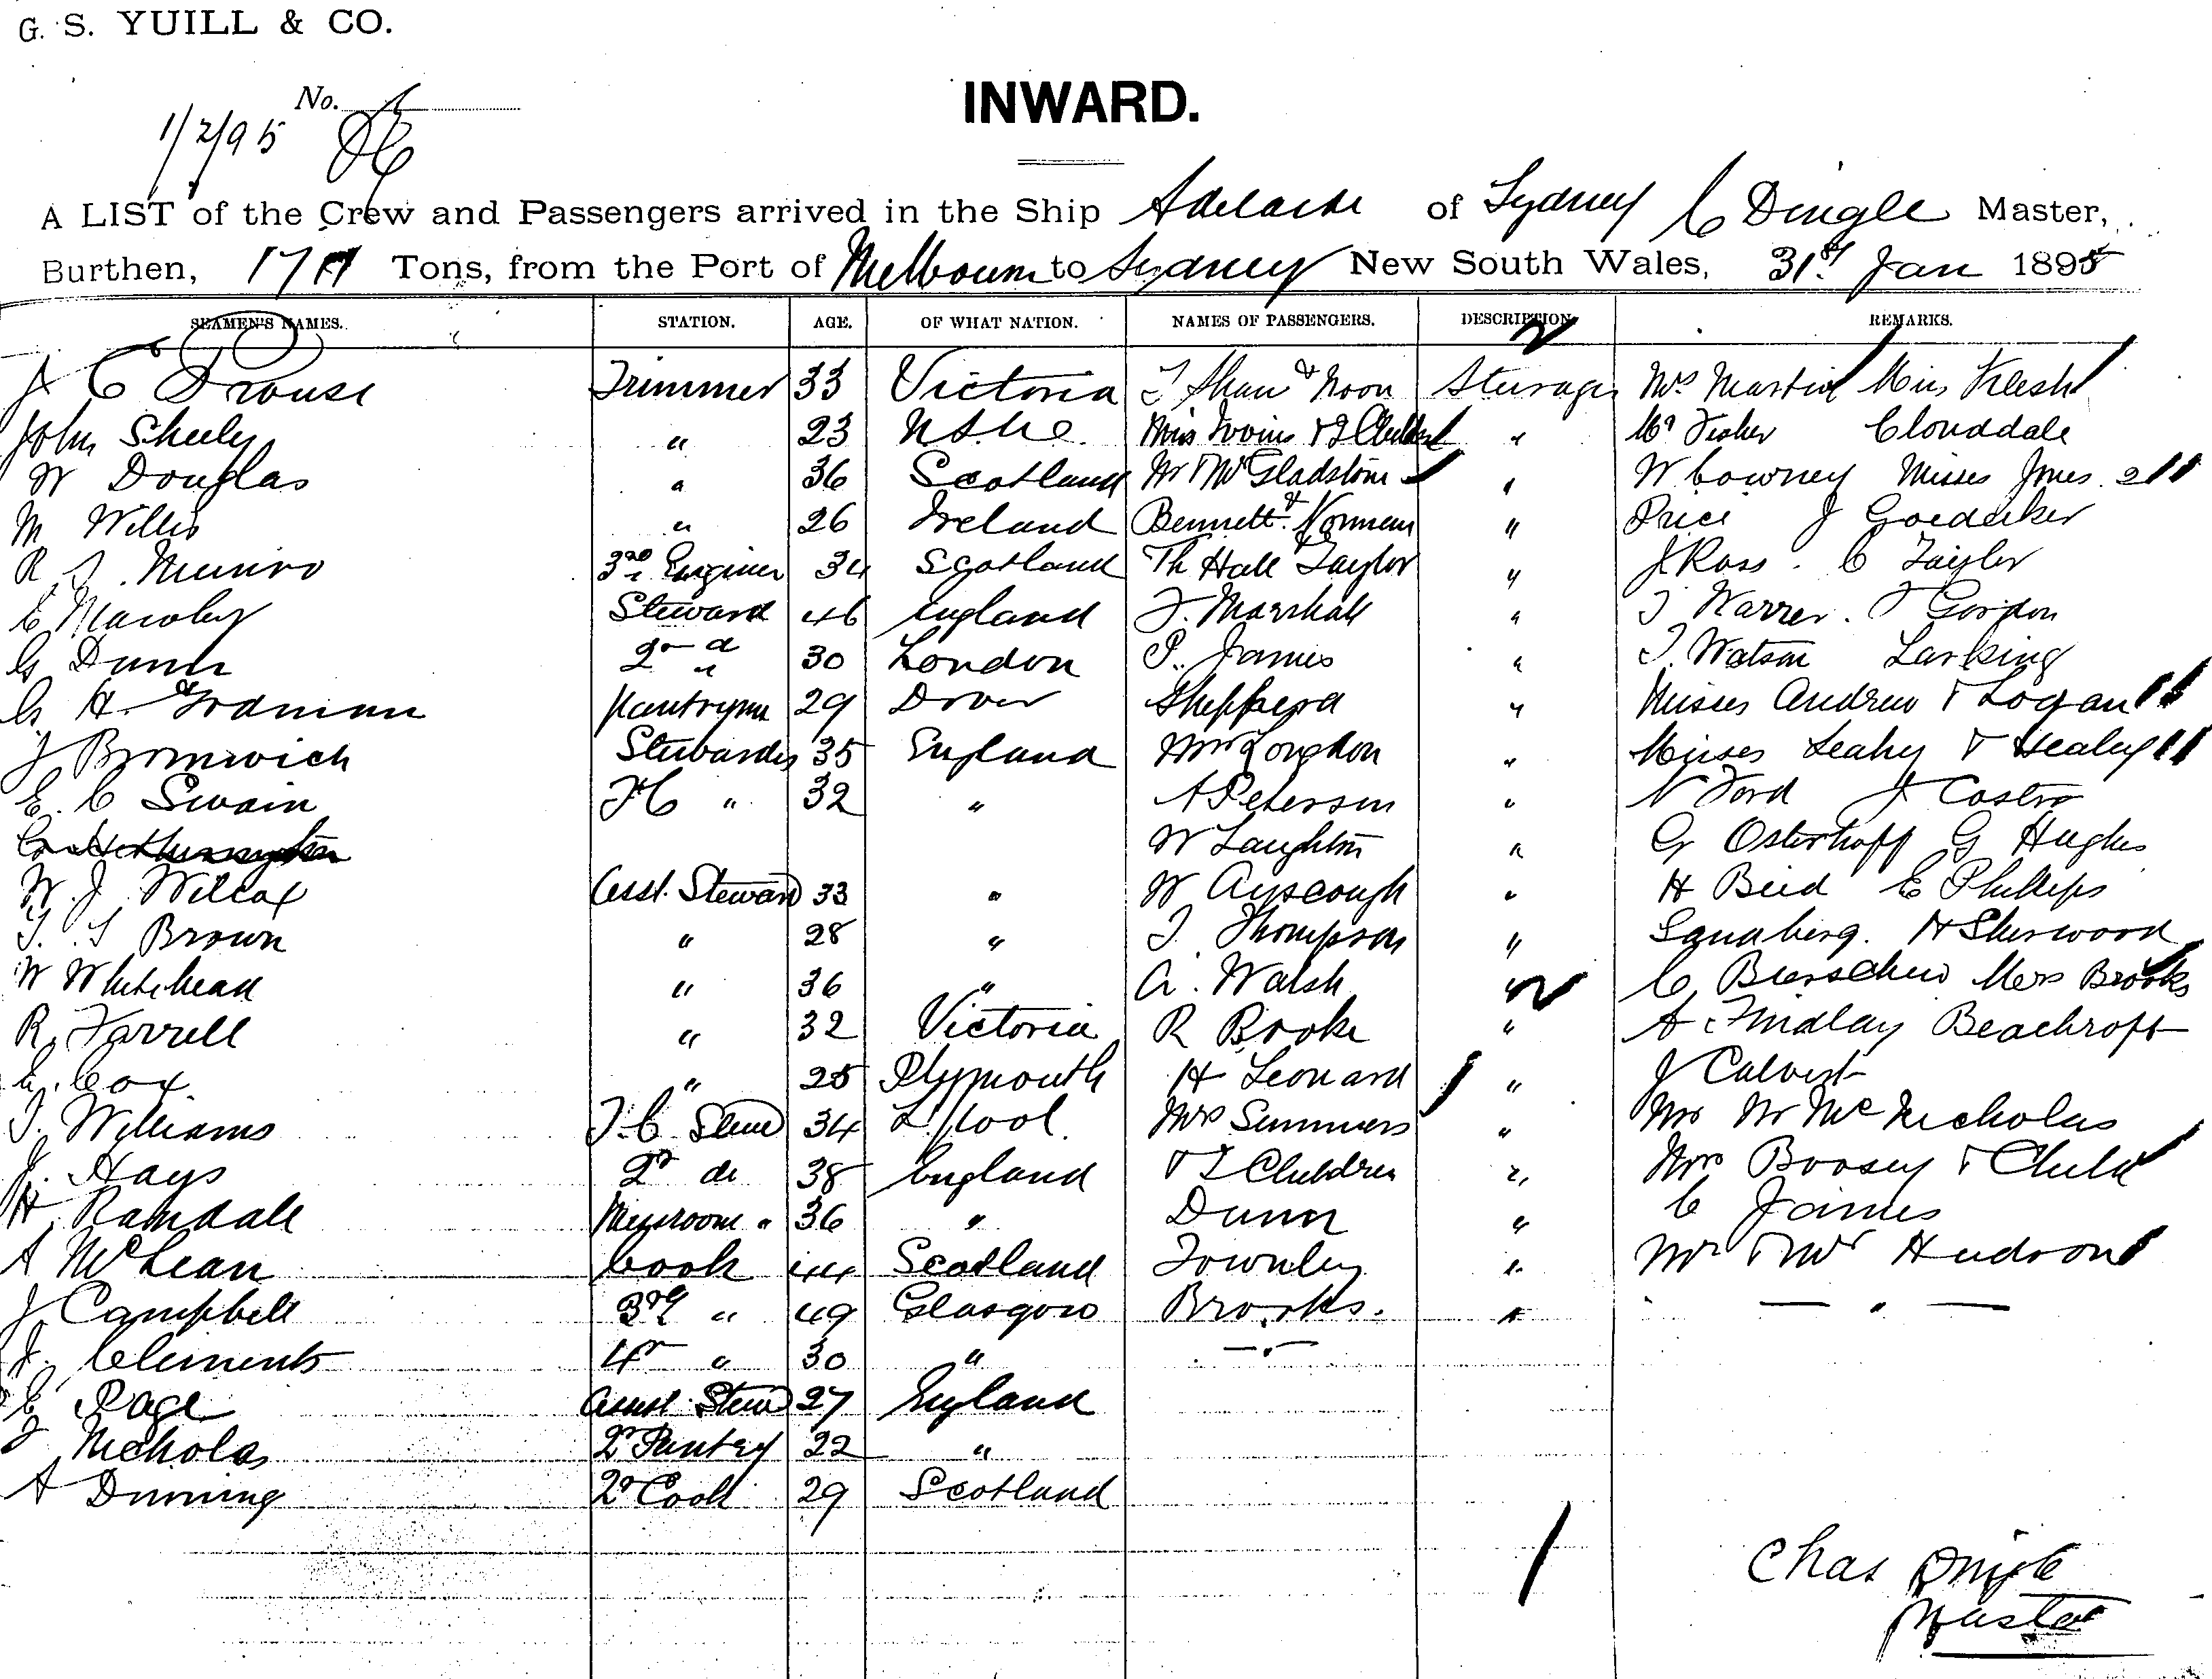 G. S. YUILL & CO.
No.
1/2/95
INWARD.
A LIST of the Crew and Passengers arrived in the Ship Adelaide of Sydney C Dingle Master,
Burthen, 1711 Tons, from the Port of Melbourn to Sydney New South Wales, 31st Jan 1895
SEAMEN'S NAMES. STATION. AGE. OF WHAT NATION. NAMES OF PASSENGERS. DESCRIPTION. REMARKS.
A C Prouse Trimmer 33 Victoria T Shan & Noon Steerage Mrs Martin Miss Flesh
John Sheely " 23 Miss & 2 Children " Mr Fisher Clouddale
W Douglas " 36 Scotland Mr & Mrs Gladstone " W Cowney Misses Jones 2
M Willis " 26 Ireland Bennett & Norman " Price J Goedecker
R J Munro 3rd Engineer 34 Scotland Th Hall Taylor " J Ross. C Taylor
C Mawby Steward 46 England J. Marshall " J Warren. J Gordon
G Dunn 2nd " 30 London P. James " J. Watson Larking
G H Yodman Pantrymn 29 Dover Shepperd " Misses Andrew & Logan
J Bromwich Stewardess 35 England Mrs Longdon " Misses Leahy & Healey
E. C Swain FC " 32 " A Peterson " N Ford J Castro
W Laughton " G Osterhoff G Hughes
W. J. Wilcox Asst. Steward 33 " W Ayscough " H Bird E Phillips
T. S Brown " 28 " J Thompson " Sandberg. H Sherwood
W Whitehead " 36 " A. Walsh " C Mrs Brooks
R. Farrell " 32 Victoria R Brooke " A Findlay Beachroft
C. Cox " 25 Plymouth H Leonard " J Calvert
T. Williams F.C Stewd 34 L'pool. Mrs Summers " Mr W McNicholas
J. Hays 2nd do 38 England & 2 Children " Mrs Boosey & Child
H Randall Messroom " 36 " Dunn " C James
A McLean Cook 44 Scotland Townley " Mr & Mrs Hudson
J Campbell 3rd " 49 Glasgow Brooks. "
J. Clements 4th " 30 "
E Page Assist Stewd 27 England
J Nicholas 2d Pantry 22 "
A Dunning 2d Cook 29 Scotland
Chas Dingle
Master